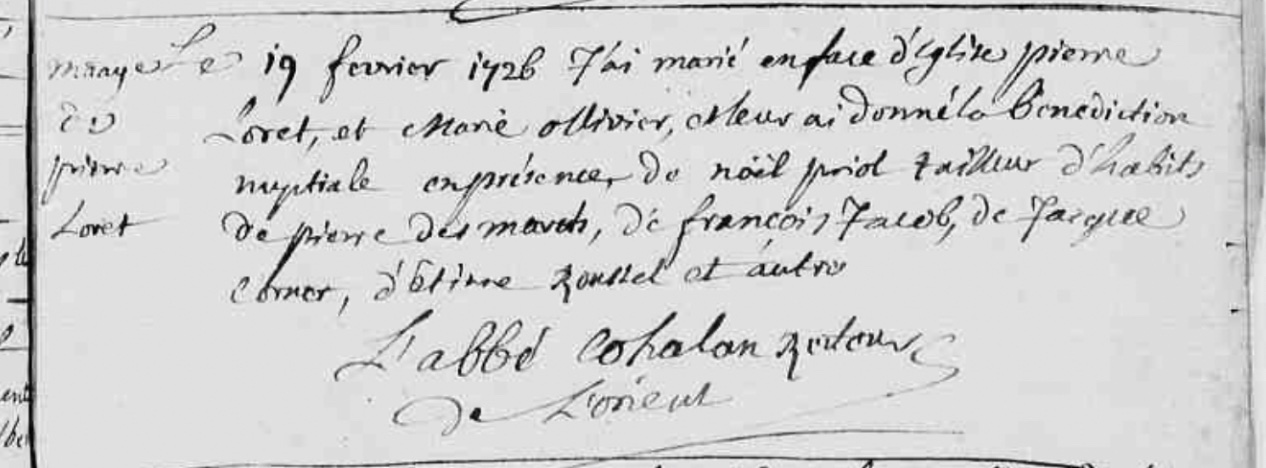 mariage
de
pierre
Loret
Le 19 fevrier 1726 J'ai marié en face d'Eglise pierre
Loret, et Marie ollivier, et leur ai donné la benediction
nuptiale en présence de noël priol tailleur d'habits
de pierre des marets, de françois Jacob, de Jacque
Corner, d'étiene Roussel et autre
L'abbé Cohalan Recteur
de L'orient